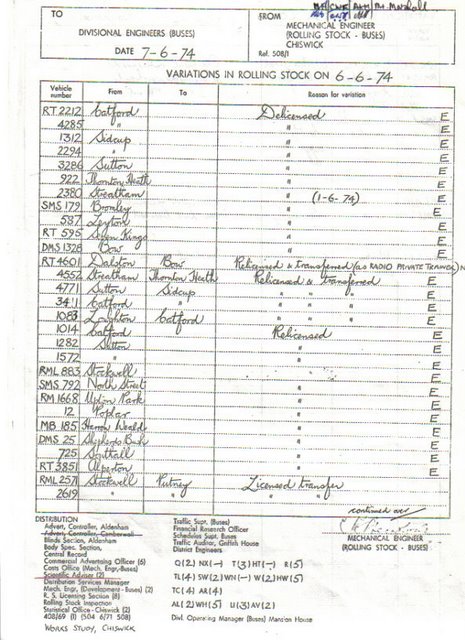 TO
DIVISIONAL ENGINEERS (BUSES)
DATE 7-6-74
FROM
MECHANICAL ENGINEER
(ROLLING STOCK - BUSES)
CHISWICK
Ref. 508/1
VARIATIONS IN ROLLING STOCK ON 6-6-74
Vehicle number From To Reason for variation
RT 2212 Catford Delicensed E
4285 " " E
1312 Sidcup " E
2294 " " E
3286 Sutton " E
922 Thornton Heath " E
2380 Streatham " (1-6-74) E
SMS 179 Bromley " E
587 Leyton " E
RT 595 Seven Kings " E
DMS 1328 Bow " E
RT 4601 Dalston Bow Relicensed & transferred (as RADIO PRIVATE TRAINER) N
4552 Streatham Thornton Heath Relicensed & transferred E
4771 Sutton Sidcup " " " E
3411 Catford " " " " E
1083 Loughton Catford " " " E
1014 Catford Relicensed E
1282 Sutton " E
1572 " " E
RML 883 Stockwell " E
SMS 792 North Street " E
RM 1668 Upton Park " E
12 Poplar " E
MB 185 Harrow Weald " E
DMS 25 Shepherds Bush " E
725 Southall " E
RT 3851 Alperton " E
RML 2571 Stockwell Putney Licensed transfer E
2619 " " " " E
continued over
MECHANICAL ENGINEER
(ROLLING STOCK - BUSES)
DISTRIBUTION
Advert. Controller, Aldenham
Advert. Controller, Camberwell
Blinds Section, Aldenham
Body Spec. Section,
Central Record
Commercial Advertising Officer (6)
Costs Office (Mech. Engr.-Buses)
Scientific Adviser (2)
Distribution Services Manager
Mech. Engr. (Development - Buses) (2)
R. S. Licensing Section (8)
Rolling Stock Inspection
Statistical Office - Chiswick (2)
408/69 (1) (504 6/71 508)
WORKS STUDY, CHISWICK
Traffic Supt. (Buses)
Financial Research Officer
Schedules Supt. Buses
Traffic Auditor, Griffith House
District Engineers
Q(2) NX(-) T(3) HT(-) R(5)
TL(4) SW(2) WN(-) W(2) HW(5)
TC(4) AR(4)
AL(2) WH(5) U(3) AV(2)
Divl. Operating Manager (Buses) Mansion House